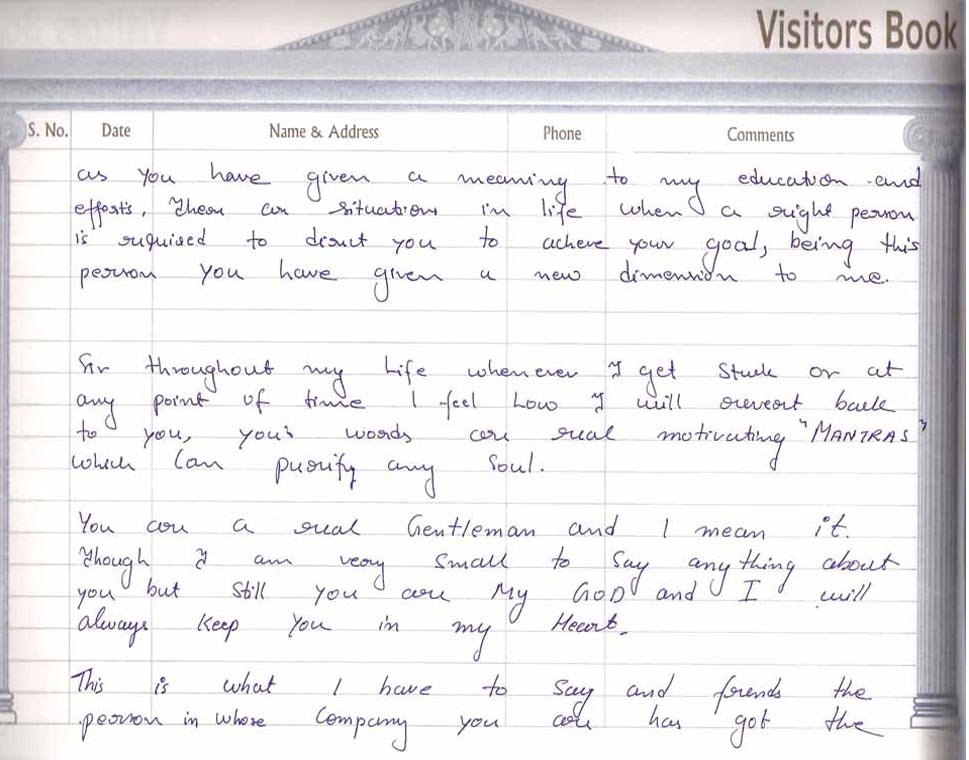 Visitors Book
S. No. Date Name & Address Phone Comments
as you have given a meaning to my education and
efforts, There are situations in life when a right person
is required to direct you to acheve your goal, being this
person you have given a new dimension to me.
Sir throughout my Life whenever I get Stuck or at
any point of time I feel Low I will revert back
to you, your words are real motivating "MANTRAS"
which Can purify any Soul.
You are a real Gentleman and I mean it.
Though I am very Small to Say any thing about
you but Still you are My GOD and I will
always Keep You in my Heart.
This is what I have to Say and friends the
person in whose Company you are has got the